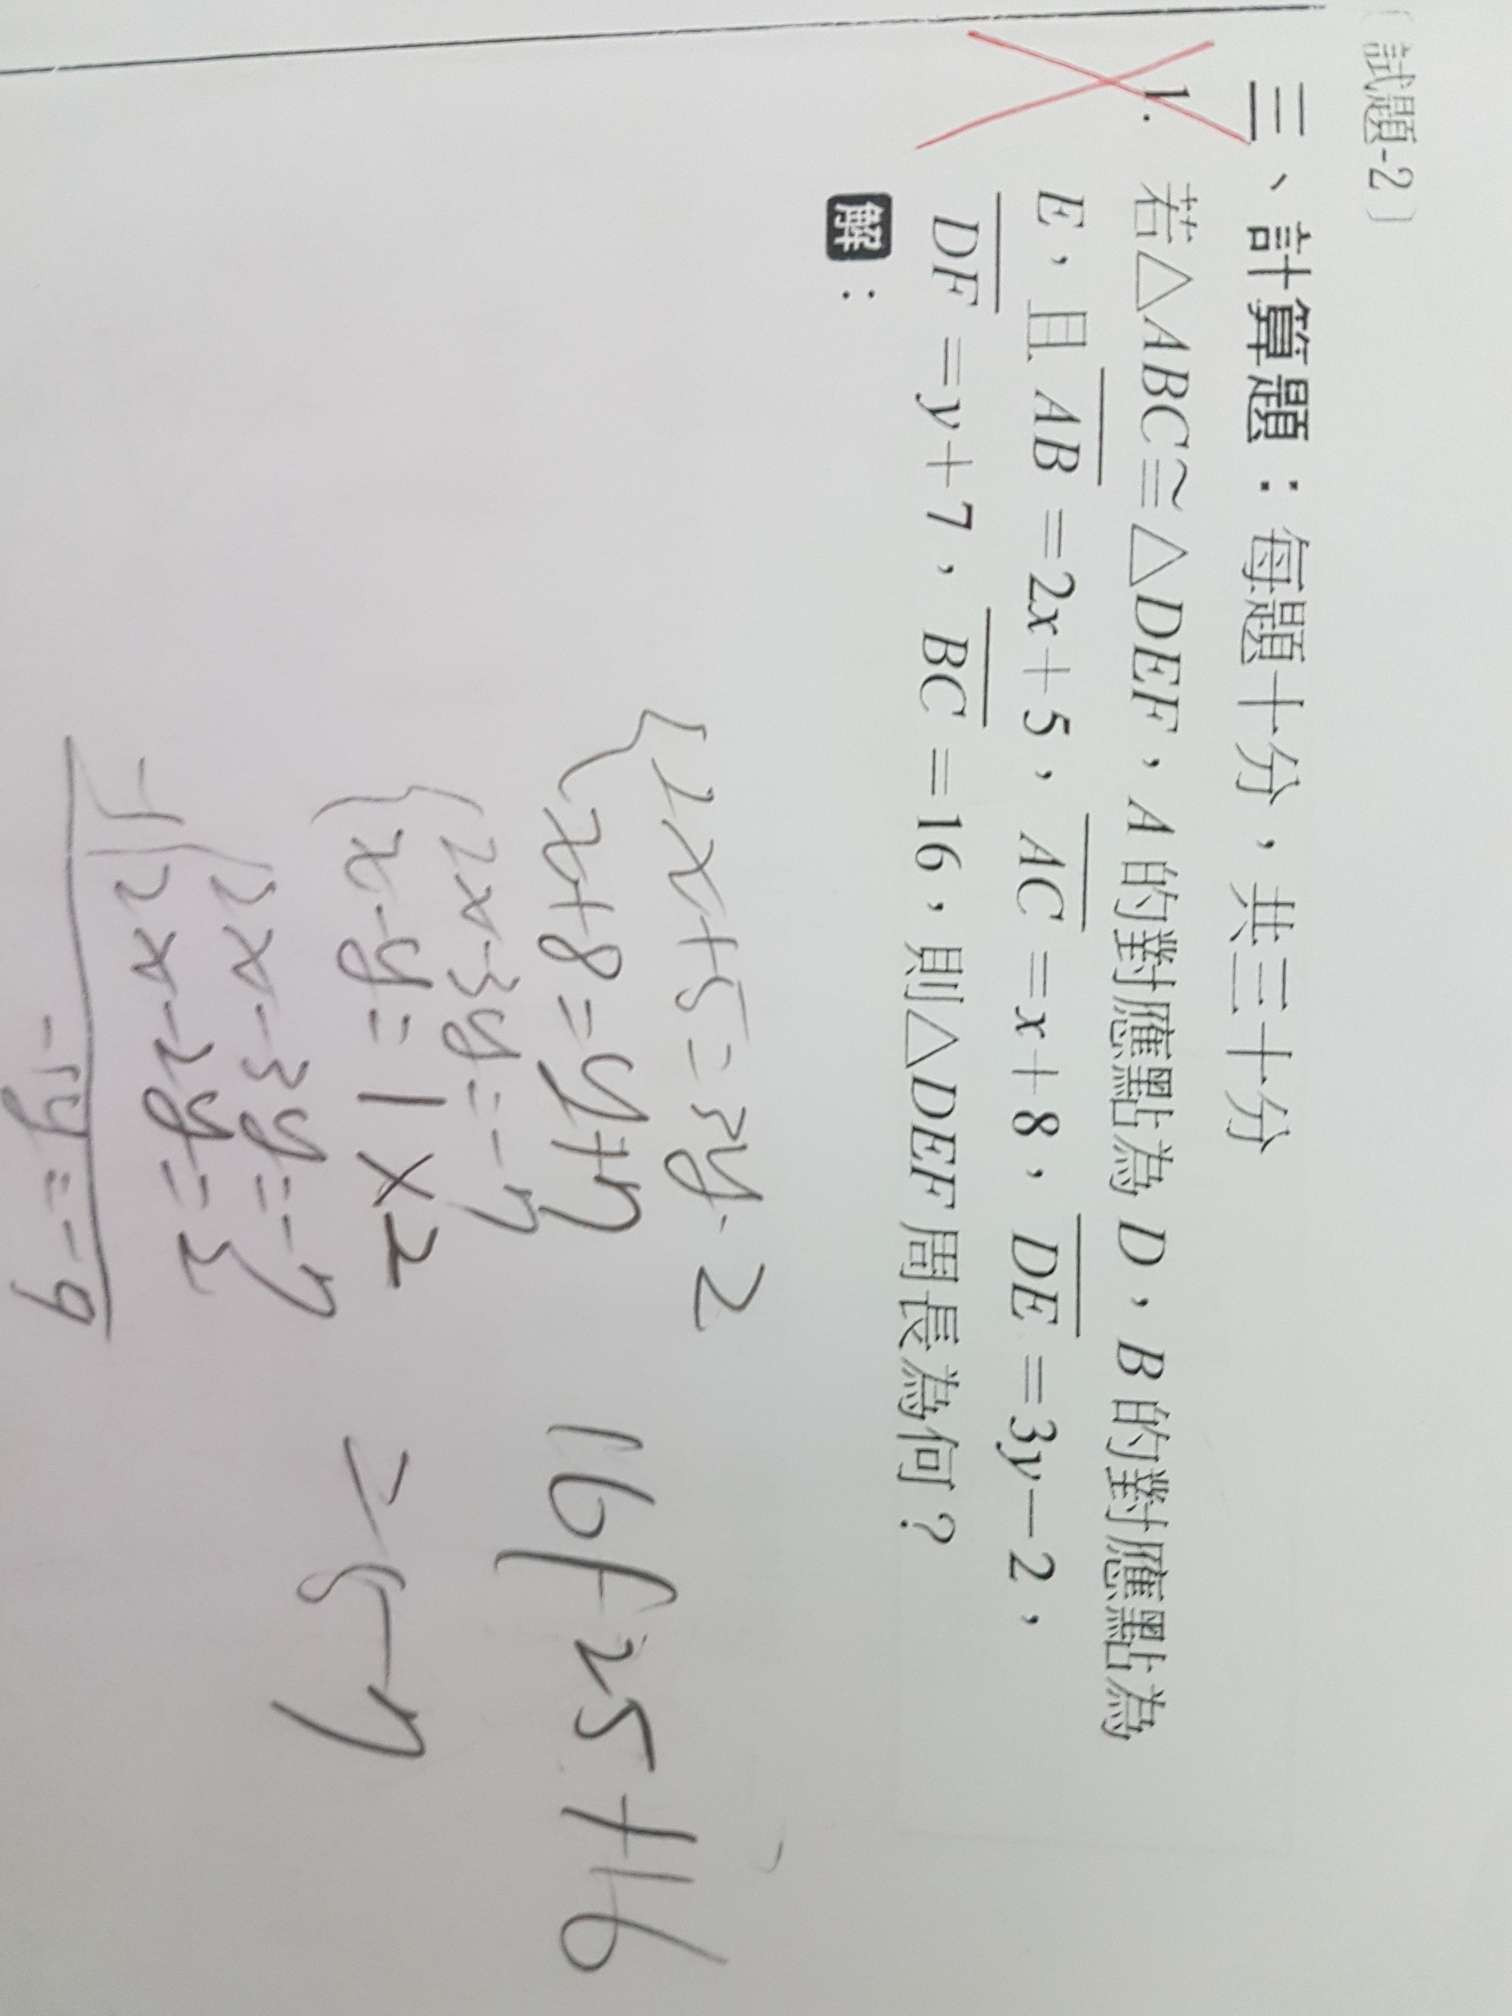 〔試題-2〕
三、計算題：每題十分，共三十分
1. 若△ABC≅△DEF，A 的對應點為 D，B 的對應點為
E，且 AB =2x+5，AC =x+8，DE =3y−2，
DF =y+7，BC =16，則△DEF 周長為何？
解：
2x+5=3y-2
x+8=y+7
2x-3y=-7
x-y=1×2
2x-3y=-7
-) 2x-2y=2
-5y=-9
16+25+16
=57